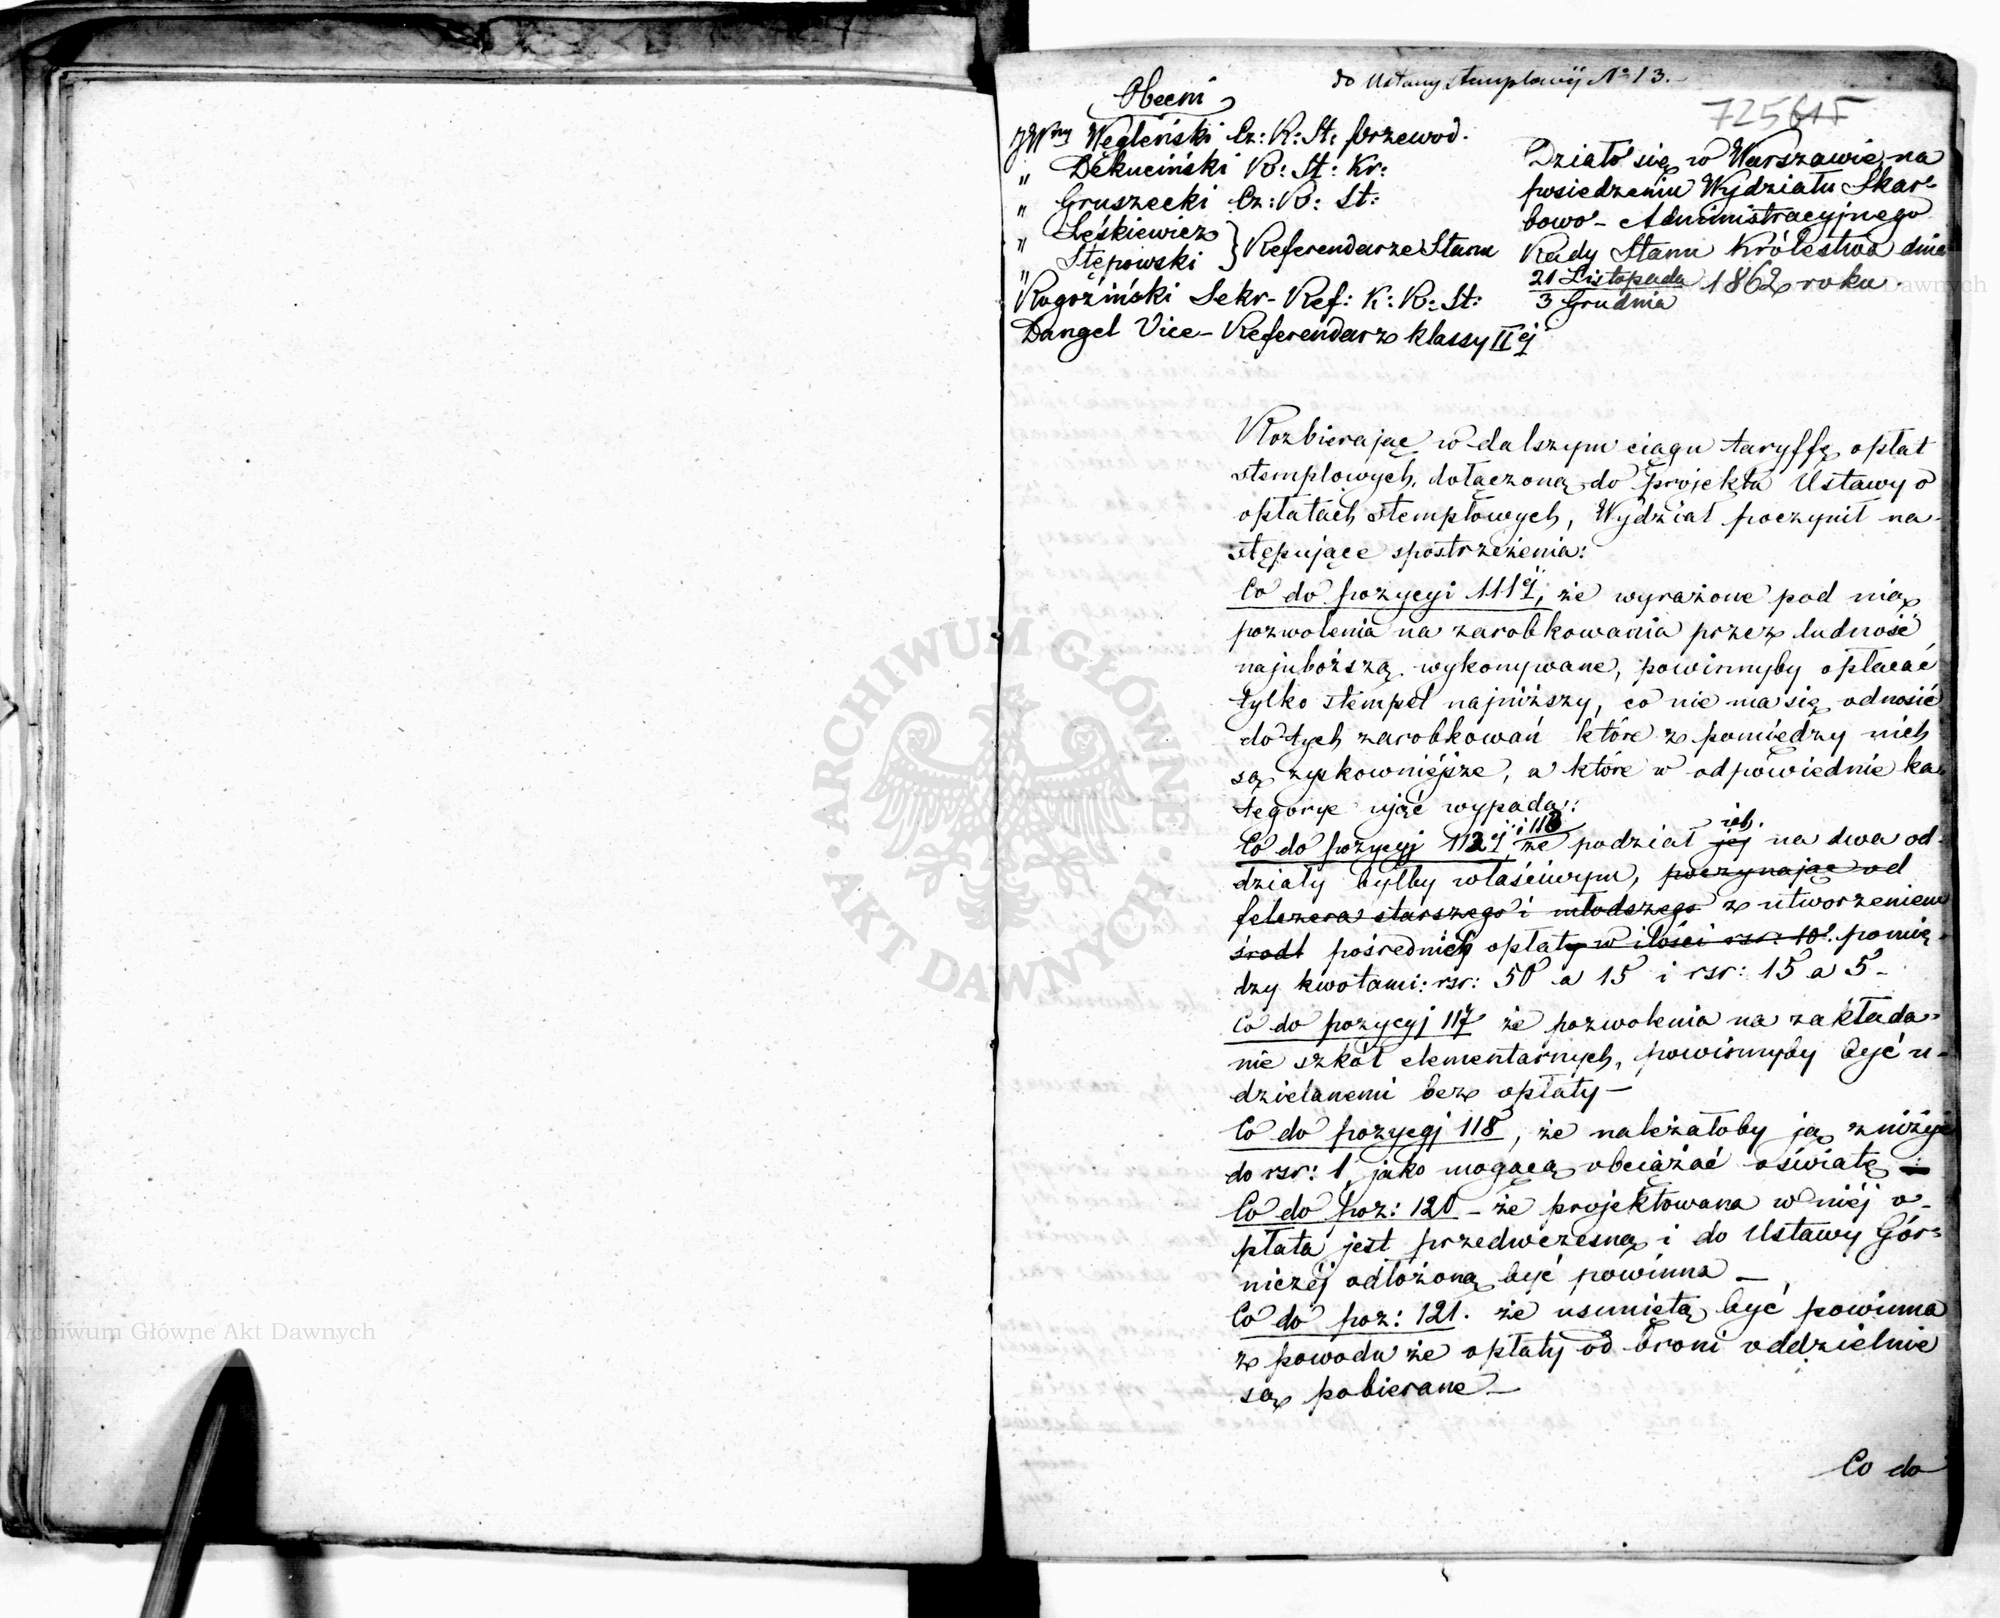 do Ustawy stemplowéj No 13.
725
Obecni
JWny Węgleński Cz: R: St: przewod.
" Dekuciński R: St: Kr:
" Gruszecki Cz: R: St:
" Leśkiewicz
" Stępowski } Referendarze Stanu
Rogoziński Sekr- Ref: K: R: St:
Dangel Vice- Referendarz klassy IIéj
Działo się w Warszawie, na
posiedzeniu Wydziału Skar-
bowo- Administracyjnego
Rady Stanu Królestwa dnia
21 Listopada 1862 roku.
3 Grudnia
Rozbierając w dalszym ciągu taryffę opłat
stemplowych, dołączoną do Projektu Ustawy o
opłatach stemplowych, Wydział poczynił na-
stępujące spostrzeżenia:
Co do pozycyi 111éj, że wyrażone pod nią
pozwolenia na zarobkowania przez ludność
najuboższą wykonywane, powinnyby opłacać
tylko stempel najniższy, co nie ma się odnosić
do tych zarobkowań które z pomiędzy nich
są zyskowniejsze, a które w odpowiednie ka-
tegorye ująć wypada:
Co do pozycyj 112éj i 113 że podział jej ich na dwa od-
działy byłby właściwym, poczynając od
felczera starszego i młodszego z utworzeniem
środł pośrednich opłaty w ilości rsr: 10. pomię-
dzy kwotami: rsr: 50 a 15 i rsr: 15 a 5-
Co do pozycyj 117 że pozwolenia na zakłada-
nie szkół elementarnych, powinnyby być u-
dzielanemi bez opłaty -
Co do pozycyj 118, że należałoby ją zniżyć
do rsr: 1, jako mogącą obciążać oświatę
Co do poz: 120 - że projektowana w niéj o-
płata jest przedwczesną i do Ustawy Gór-
niczéj odłożoną być powinna -
Co do poz: 121. że usuniętą być powinna
z powodu że opłaty od broni oddzielnie
są pobierane -
Co do
ARCHIWUM GŁÓWNE
AKT DAWNYCH
Archiwum Główne Akt Dawnych